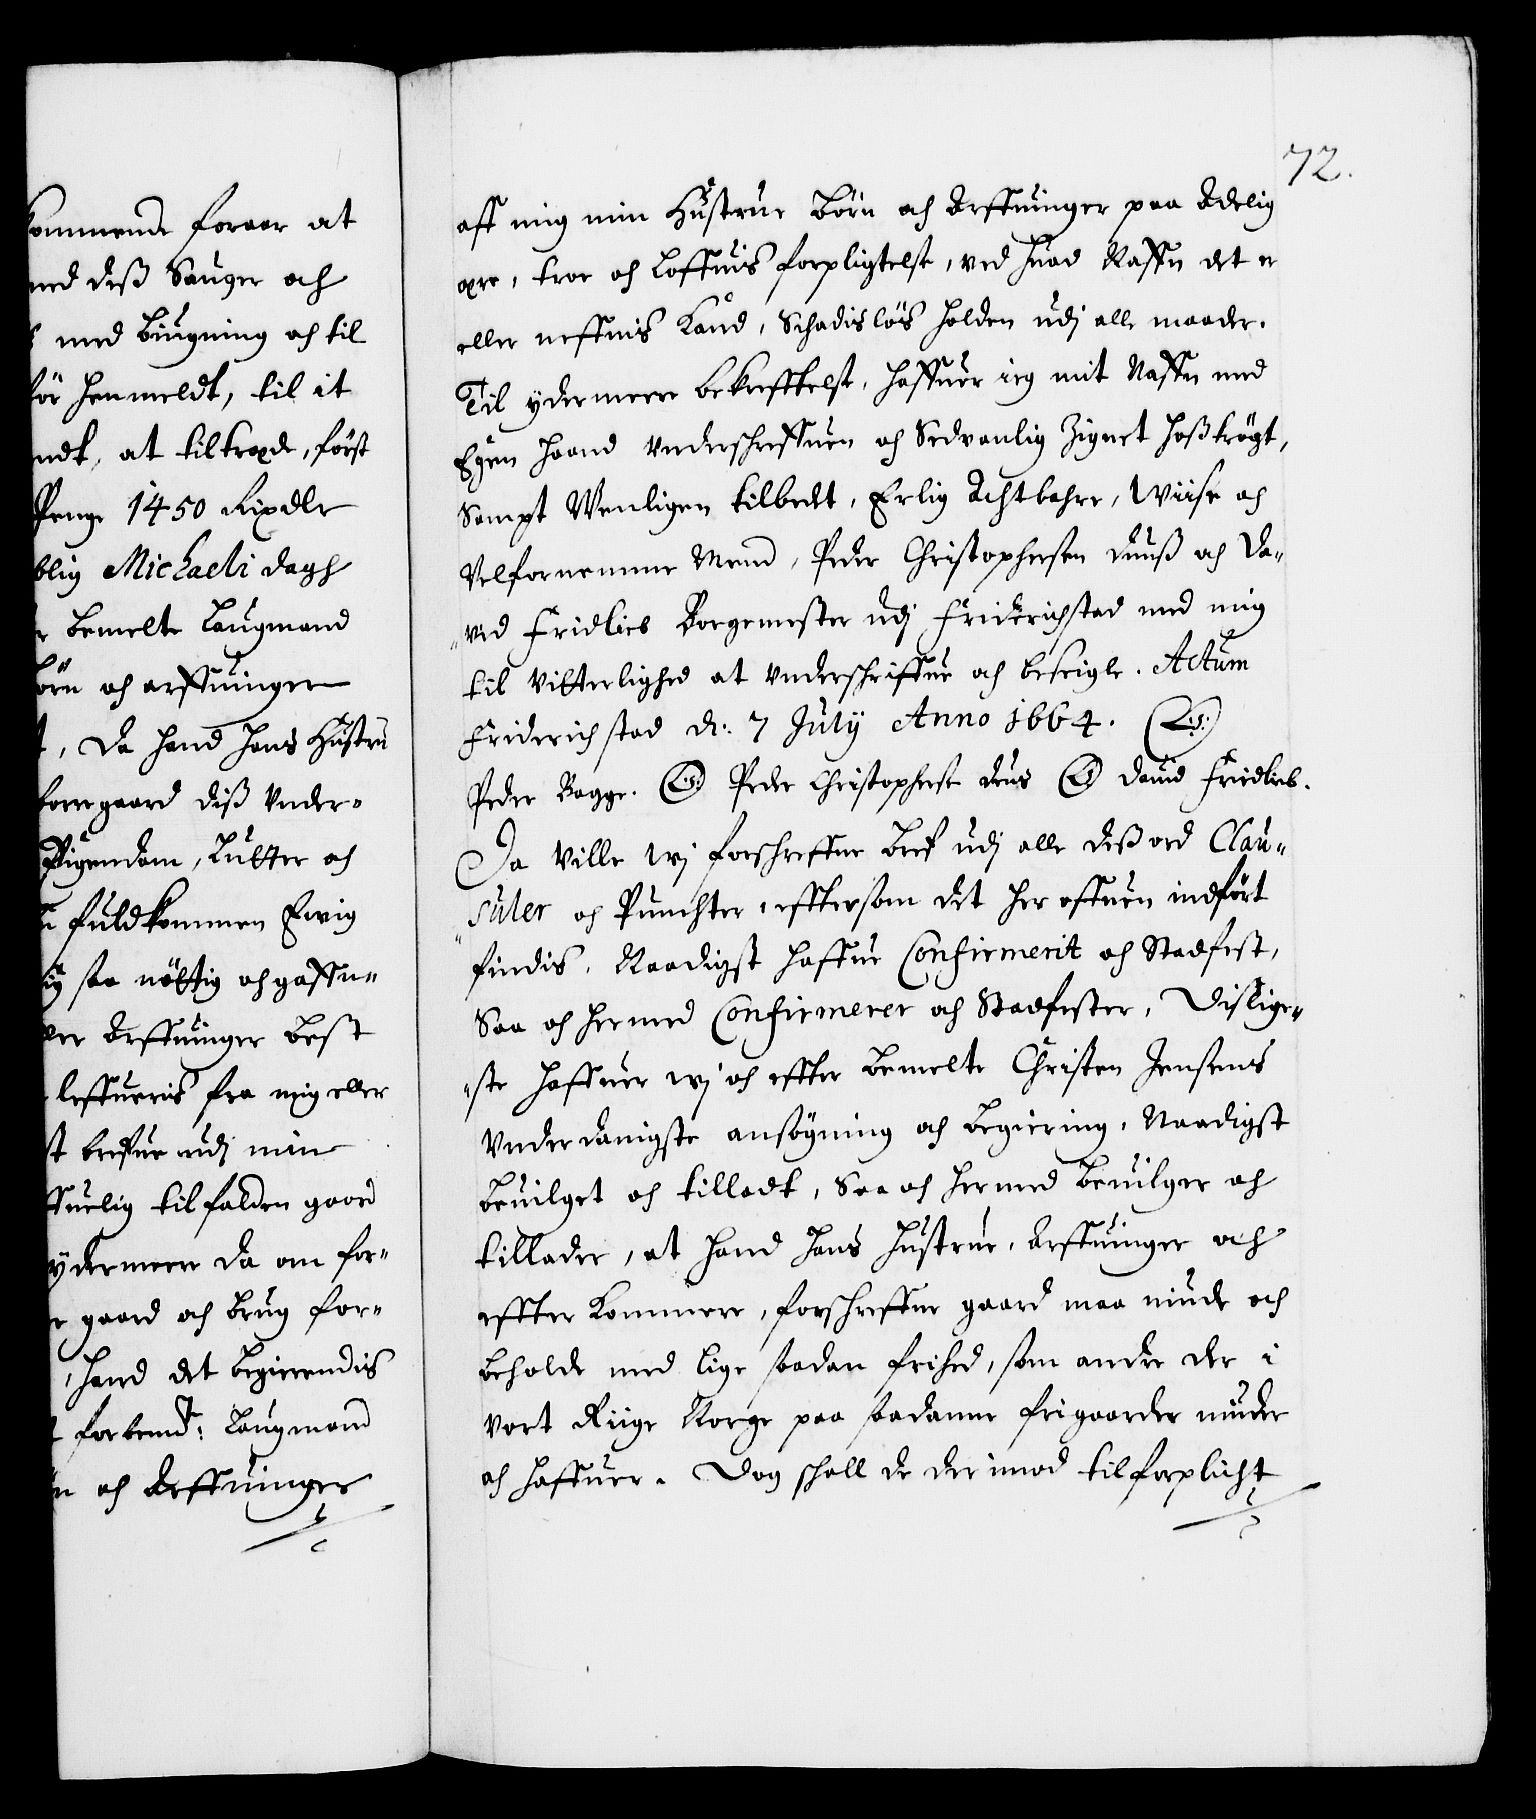 kommende foraar at
med diß Sauger och
med biugning och til
för henmeldt, til it
ndt, at tiltræde, først
Penge 1450 Rixdlr
blig Michaeli dagh
r bemelte Laugmand
börn och arffuinger
t, da hand hans Hustru
forregaard diß Vnder-
Eigendom, Lutter och
fuldkommen Evig
ig saa nöttig och gaffn-
ller Arffuinger best
leffueris fra mig eller
st breffue udj min
ffuelig tilfalden gaard
ydermeere da om for-
r gaard och brug for-
, hand det begierendis
forbemt: Laugmand
n och Arffuinger
72.
aff mig min Hustrue börn och Arffuinger paa Adelig
ære, troe och Loffuis forpligtelse, ved huad Naffn det er
eller neffnis Kand, Schadislös holden udj alle maader.
Til ydermeere bekrefftelse, haffuer ieg mit Naffn med
Egen Haand vnderschreffuen och Sedvanlig Zignet hoßtrögt,
Sampt Wenligen tilbedt, Erlig Achtbahre, Wiise och
Velfornemme Mend, Peder Christophersen Duuß och Da-
"ved Fridlieb Borgemester udj Friderichstad med mig
til Vitterlighed at vnderschriffue och beseigle. Actum
Friderichstad d: 7 July Anno 1664. (L.S:)
Peder Bagge. (L.S:) Peder Christopherse Duus (LS) David Friedlieb.
Da Ville wj forschreffne bref udj alle diß ord Clau-
"suler och Punchter, efftersom det her offuen indfört
findis, Naadigst haffue Confirmerit och Stadfest,
Saa och hermed Confirmerer och Stadfester, Dislige-
"ste haffuer wj och effter bemelte Christen Jensens
Vnderdanigste ansögning och begiering, Naadigst
bevilget och tilladt, Saa och hermed bevilger och
tillader, at hand hans Hustrue, Arffuinger och
effter Kommere, forschreffne gaard maa niude och
beholde med lige saadan frihed, som andre der i
vort Riige Norge paa saadanne frigaarder niuder
och haffuer. Dog schall de der imod tilforplicht